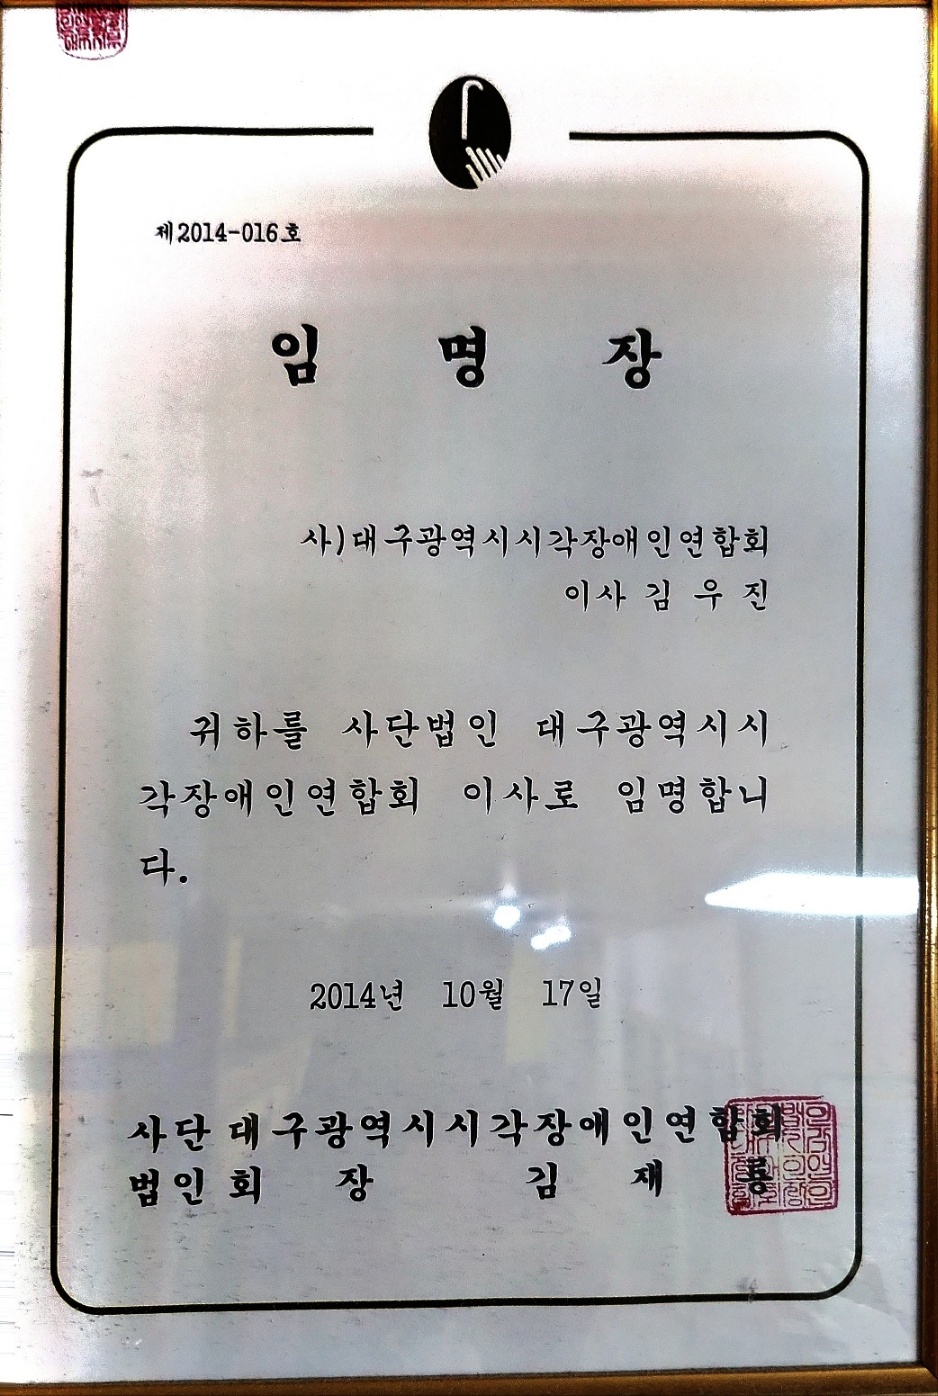 제2014-016호
임 명 장
사)대구광역시시각장애인연합회
이사 김 우 진
귀하를 사단법인 대구광역시시
각장애인연합회 이사로 임명합니
다.
2014년 10월 17일
사단 대구광역시시각장애인연합회
법인 회 장 김 재 룡